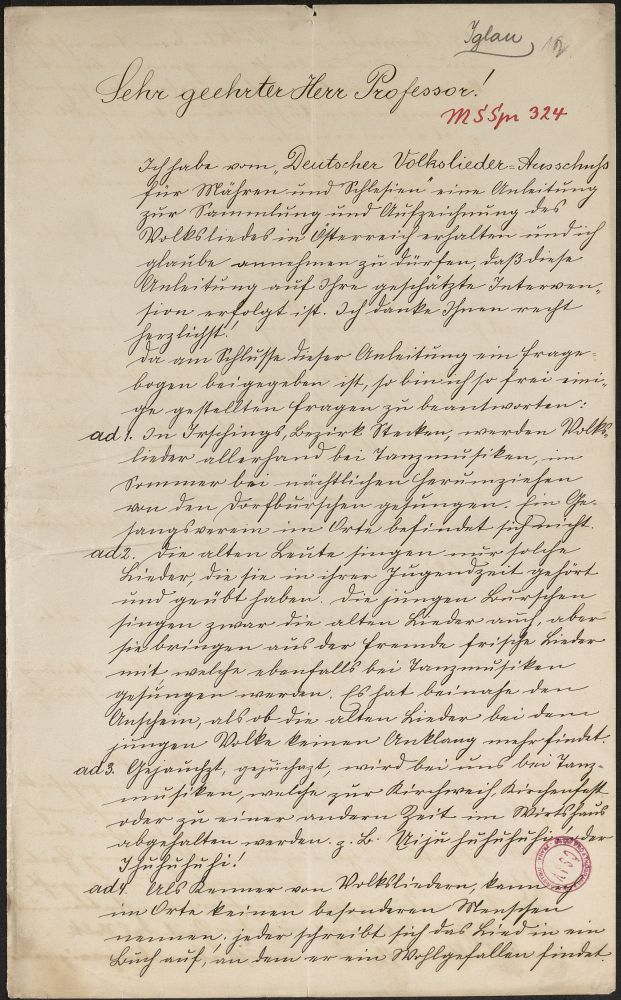 Iglau,
Sehr geehrter Herr Professor!
MSSpn 324
Ich habe vom „Deutscher Volkslieder-Ausschuss
für Mähren und Schlesien" eine Anleitung
zur Sammlung und Aufzeichnung des
Volksliedes in Österreich erhalten und ich
glaube annehmen zu dürfen, daß diese
Anleitung auf Ihre geschätzte Interven„
sion erfolgt ist. Ich danke Ihnen recht
herzlichst!
Da am Schlusse dieser Anleitung ein Frage-
bogen beigegeben ist, so bin ich so frei eini-
ge gestellten Fragen zu beantworten:
ad 1. In Irschings, Bezirk Stecken, werden Volks-
lieder allerhand bei Tanzmusiken, im
Sommer bei nächtlichen Herumziehen
von den Dorfburschen gesungen. Ein Ge-
sangsverein im Orte befindet sich nicht.
ad 2. Die alten Leute singen nur solche
Lieder, die sie in ihrer Jugendzeit gehört
und geübt haben. Die jungen Burschen
singen zwar die alten Lieder auch, aber
sie bringen aus der Fremde frische Lieder
mit welche ebenfalls bei Tanzmusiken
gesungen werden. Es hat beinahe den
Anschein, als ob die alten Lieder bei dem
jungen Volke keinen Anklang mehr findet.
ad 3. Gejauchzt, gejuchazt, wird bei uns bei Tanz-
musiken, welche zur Kirchweih, Kirchenfest
oder zu einer andern Zeit im Wirtshaus
abgehalten werden. z. B. Uiju huhuhuhi! oder
Ihuhuhuhi!
ad 4. Als Kenner von Volksliedern, kann ich
im Orte keinen besonderen Menschen
nennen, jeder schreibt sich das Lied in ein
Buch auf, an dem er ein Wohlgefallen findet.